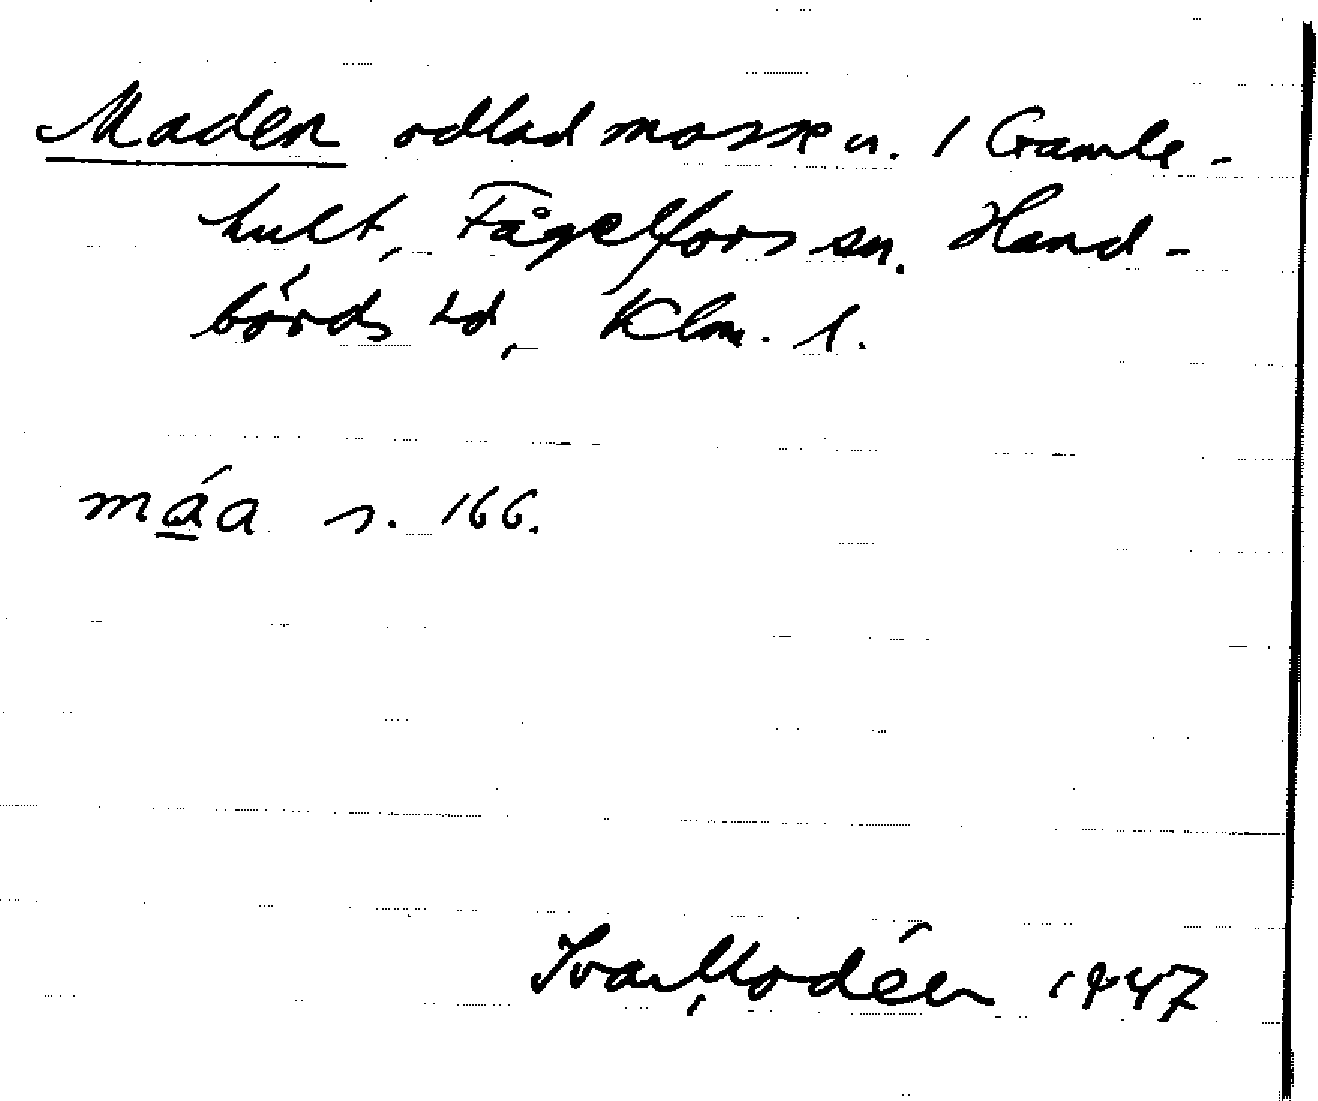 Maden odlad mosse u. 1 Gamle-
hult, Fågelfors sn. Hand-
börds hd, Klm. l.
máa s. 166.
Ivar Modéer 1947